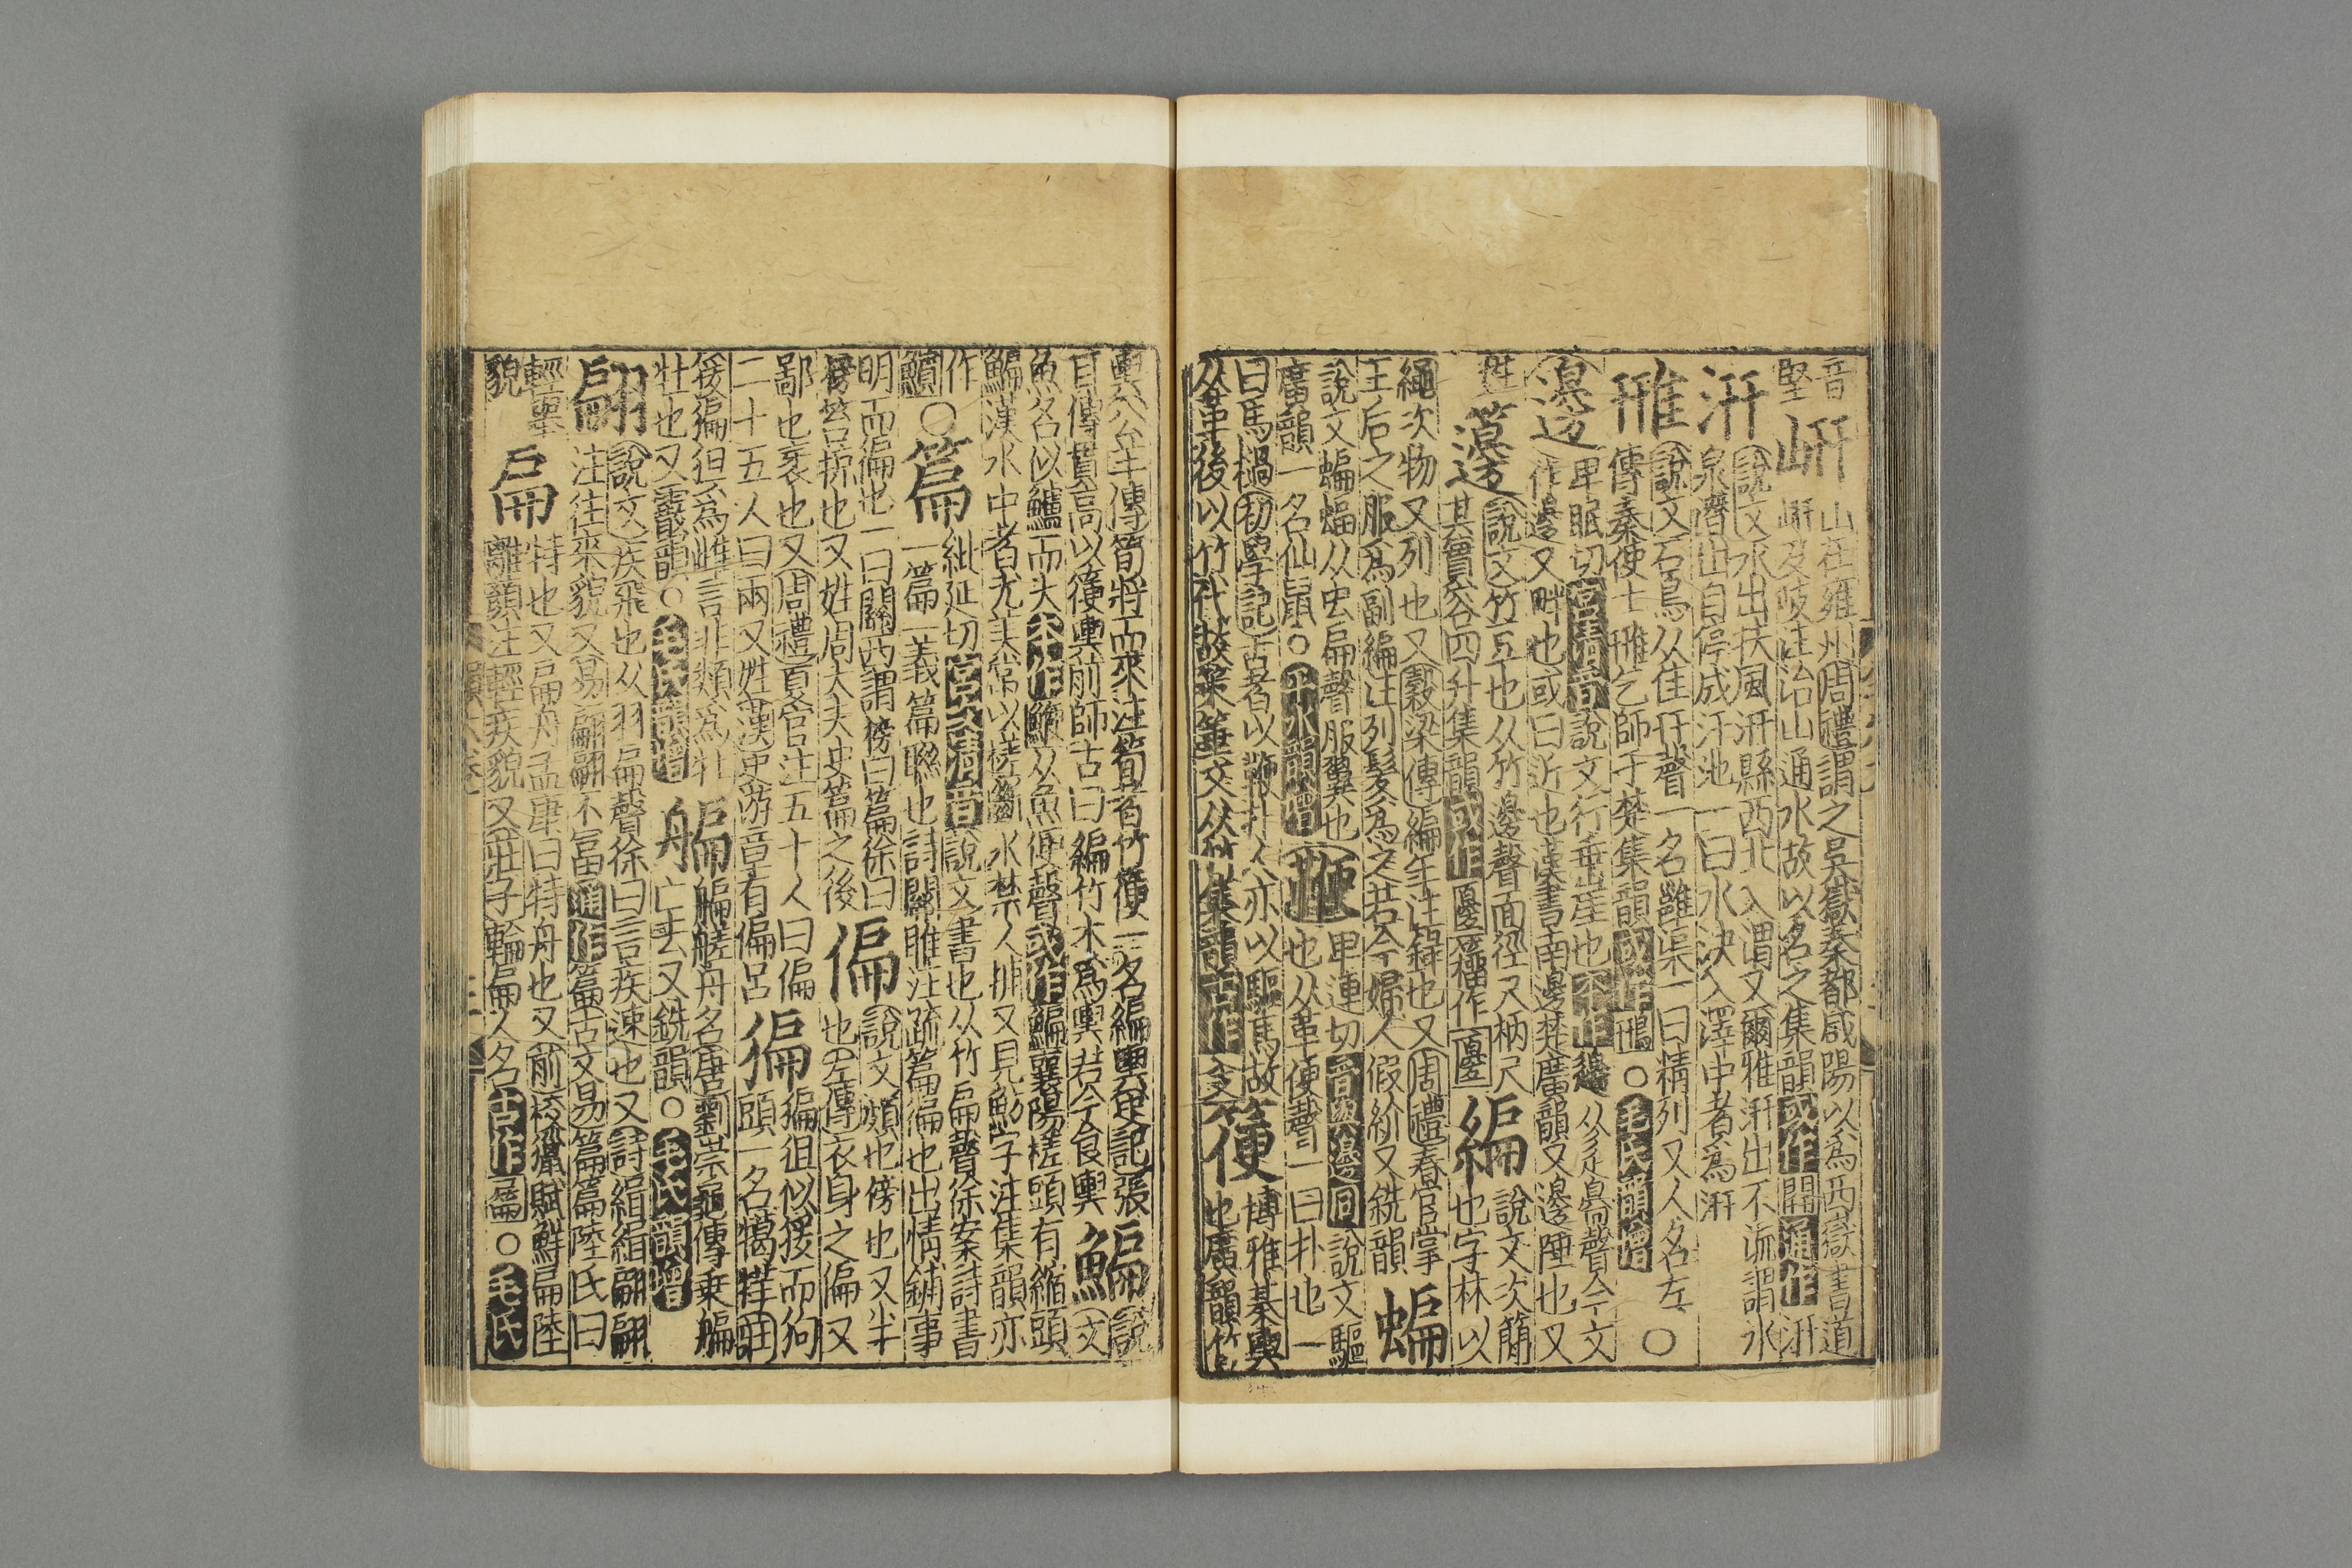 音
堅
岍
山在雍州周禮謂之吳嶽秦都咸陽以爲西嶽書道
岍及岐注治山通水故以名之集韻或作開通作汧
汧
說文水出扶風汧縣西北入渭又爾雅汧出不流謂水
泉潛出自停成汙池一曰水決入澤中者爲汧
雃
說文石鳥从隹幵聲一名雝渠一曰精列又人名左
傳秦使士雃乞師于楚集韻或作鳽○毛氏韻增○
邊
卑眠切宮清音說文行垂崖也本作邊从辵臱聲今文
作邊又畔也或曰近也漢書南邊楚廣韻又邊陲也又
姓
籩
說文竹豆也从竹邊聲面徑尺柄尺
其實容四升集韻或作
編
說文次簡
也字林以
繩次物又列也又穀梁傳編年注錄也又周禮春官掌
王后之服爲副編注列髮爲之若今婦人假紒又銑韻
蝙
說文蝙蝠从虫扁聲服翼也
廣韻一名仙鼠○平水韻增
鞭
卑連切音與邊同說文驅
也从革便聲一曰扑也一
曰馬檛初學記古者以鞭扑人亦以驅馬故
从革後以竹代故策箠文从竹集韻古作
箯
博雅綦輿
也廣韻竹
輿公羊傳筍將而來注筍者竹箯一名編輿史記張
耳傳貫高以箯輿前師古曰編竹木爲輿若今食輿
鯿
說
文
魚名似鱸而大本作鯾从魚便聲或作鯿襄陽槎頭有縮頭
鯿漢水中者尤美常以槎斷水禁人捕又見魴字注集韻亦
作
○
篇
紕延切宮次清音說文書也从竹扁聲徐案詩書
一篇一義篇聯也詩關雎注疏篇徧也出情鋪事
明而徧也一曰關西謂榜曰篇徐曰
榜笞掠也又姓周大夫史篇之後
偏
說文頗也傍也又半
也左傳衣身之偏又
鄙也衺也又周禮夏官注五十人曰偏
二十五人曰兩又姓漢史游章有偏呂
猵
猵狙似猨而狗
頭一名獦牂莊
猨猵狙爲雌言非類爲牡
牡也又霰韻○毛氏韻增
艑
艑艖舟名唐劉崇龜傳乗艑
亡去又銑韻○毛氏韻增
翩
說文疾飛也从羽扁聲徐曰言疾速也又詩緝緝翩翩
注往來貌又易翩翩不富通作篇古文易篇篇陸氏曰
輕舉
貌
扁
特也又扁舟孟康曰特舟也又前校獵賦鮮扁陸
離顔注輕疾貌又莊子輪扁人名古作○毛氏